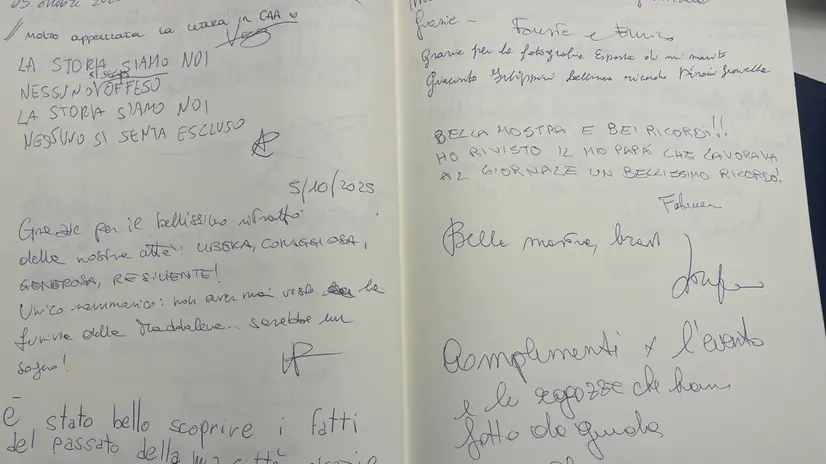 05 ottobre
// Molto apprezzata la lettura in CAA
LA STORIA SIAMO NOI
SI SENTA
NESSUNO OFFESO
LA STORIA SIAMO NOI
NESSUNO SI SENTA ESCLUSO
5/10/2025
Grazie per il bellissimo ritratto
della nostra città: LIBERA, CORAGGIOSA,
GENEROSA, RESILIENTE!
Unico rammarico: non aver mai visto la
funivia della Maddalena... sarebbe un
sogno!
È stato bello scoprire i fatti
del passato della mia città
Grazie -
Grazie per la fotografia esposta di mio marito
Giacinto bellissimo ricordo
BELLA MOSTRA E BEI RICORDI!!
HO RIVISTO IL MIO PAPÀ CHE LAVORAVA
AL GIORNALE UN BELLISSIMO RICORDO!
Bella mostra, bravi
Complimenti x l'evento
e le ragazze che han
fatto da guida